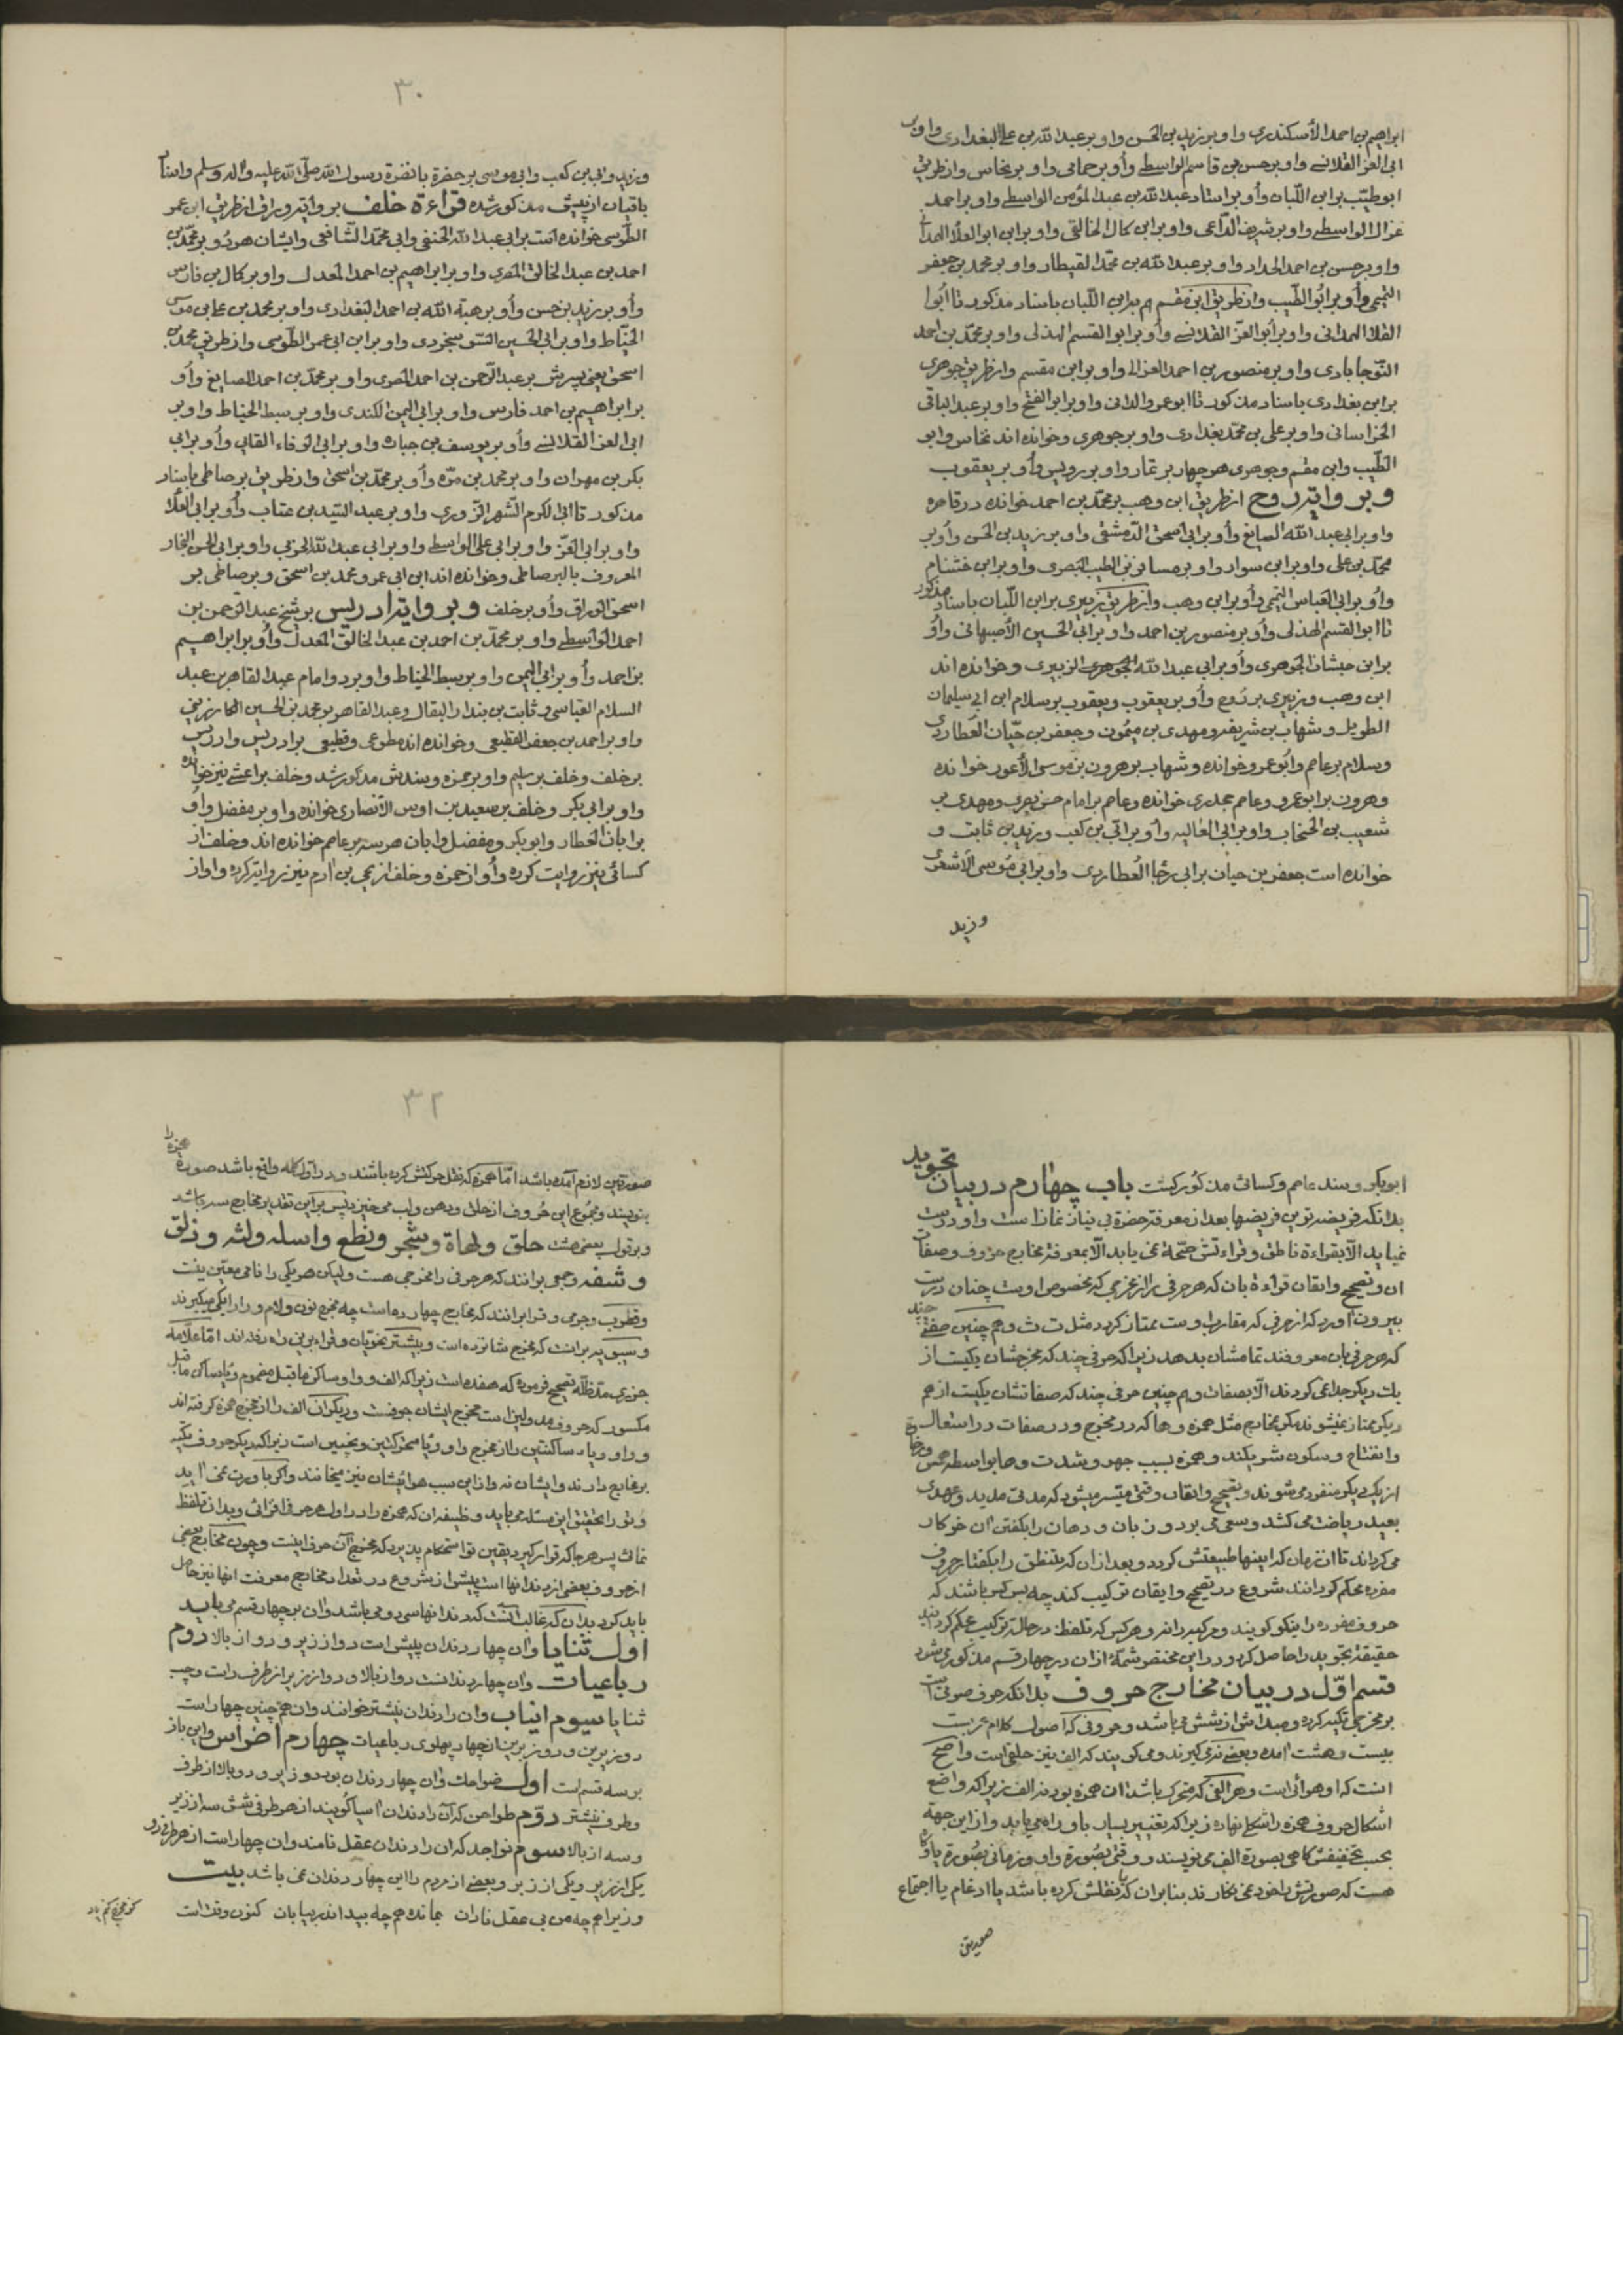 ابراهیم بن احمد الأسکندری و او بر زید بن الحسن و او بر عبد الله بن علی البغدادی و او بر
ابی العز القلانسے و او بر حسن بن قاسم الواسطے و أو بر حمامی و او بر نخاس و از طریق
ابو طیّب بر ابن اللّبان و أو بر استاد عبد الله بن عبد المؤمن الواسطے و او بر احمد
غزال الواسطے و او بر شریف الدّاعی و او بر ابن کال الخالقی و او بر ابی ابو العلاء الهمدانی
و او بر حسن بن احمد الحداد و او بر عبد الله بن محمّد القیطار و او بر محمد بن جعفر
التمیمی و أو بر ابُو الطّیب و از طریق ابن مقسم هم بر ابن اللّبان باسناد مذکور تا ابُوا
العلا الهمدانی و او بر أبو العزّ القلانسے و أو بر ابو القسم الهذلی و او بر محمّد بن احمد
النّوجابادی و او بر منصور بن احمد العزالی و او بر ابن مقسم و از طریق جوهری
بر ابن بغدادی باسناد مذکور تا ابو عمرو الدانی و او بر ابو الفتح و او بر عبد الباقی
الخراسانی و او بر علی بن محمّد بغدادی و او بر جوهری و خوانده اند نخاس و ابو
الطّیب و ابن مقسم و جوهری هر چهار بر تمار و او بر رویس و أو بر یعقوب
و بر وایتر روح از طریق ابن وهب بر محمّد بن احمد خوانده در قاهره
و او بر ابی عبد الله الصایغ و أو بر ابی اسحق الدّمشقی و او بر زید بن الحسن و أو بر
محمّد بن علی و او بر ابن سوار و او بر مسافر بن الطیب البصری و او بر ابن خشنام
و أو بر ابی العباس التیمی و أو بر ابن وهب و از طریق زبیری بر ابن اللّبان باسناد مذکور
تا ابو القسم الهذلی و أو بر منصور بن احمد و او بر ابی الحسین الأصبهانی و أو
بر ابن حبشان الجوهری و أو بر ابی عبد الله الزبیری و خوانده اند
ابن وهب و زبیری بر رَوح و أو بر یعقوب و یعقوب بر سلام ابن ابی سلیمان
الطویل و شهاب بن شریفه و مهدی بن میمُون و جعفر بن حیّان العُطاردی
و سلام بر عاصم و ابُو عمرو خوانده و شهاب بر هرون بن موسی الأعور خوانده
و هرون بر ابو عمرو و عاصم جحدری خوانده و عاصم بر امام حسن بصری و مهدی بر
شعیب بن الحبحاب و او بر ابی العالیه و أو بر ابیّ بن کعب و زید بن ثابت و
خوانده است جعفر بن حیان بر ابی رجا العُطاردی و او بر ابی مُوسی الاشعری
و زید
۳۰
و زید و ابی بن کعب و ابی موسی بر حضرة با نضرة رسول الله صلّی الله علیه و اله وسلم و اسناد
باقیان از پیش مذکور شده قراءة خلف بر وایتر وراق از طریق ابن عمر
الطّوسی خوانده است بر ابی عبد الله الحنفی و ابی محمّد الشّافعی و ایشان هر دو بر محمّد بن
احمد بن عبد الخالق المقری و او بر ابراهیم بن احمد المعدل و او بر کمال بن فارس
و أو بر زید بن حسن و أو بر هبة الله بن احمد البغدادی و او بر محمد بن علی بن موسی
الخیّاط و او بر ابی الحسین السّوسنجردی و او بر ابن ابی عمر الطّوسی و از طریق محمّد بن
اسحق یعنی پسرش بر عبد الرّحمن بن احمد المصری و او بر محمّد بن احمد الصایغ و أو
بر ابراهیم بن احمد فارس و او بر ابی الیمن الکندی و او بر سبط الخیاط و او بر
ابی العز القلانسے و أو بر یوسف بن جباره و او بر ابی الوفاء القاینی و أو بر ابی
بکر بن مهران و او بر محمد بن مرّه و أو بر محمّد بن اسحق و از طریق برصاطی باسناد
مذکور تا ابی الکرم الشّهرزّوری و او بر عبد السّید بن عتاب و أو بر ابی العلا
و او بر ابی العزّ و او بر ابی علی الواسطے و او بر ابی عبد الله الحربی و او بر ابی الحسن النجار
المعروف بالبرصاطی و خوانده اند ابن ابی عمرو و محمد بن اسحق و برصاطی بر
اسحق الوراق و أو بر خلف و بر وایتر ادریس بر شیخ عبد الرّحمن بن
احمد الواسطے و او بر محمّد بن احمد بن عبد الخالق المعدل و أو بر ابراهیم
بن احمد و أو بر ابی الیمن و او بر سبط الخیاط و او بر دو امام عبد القاهر بن عبد
السلام العباسی و ثابت بن بندار البقال و عبد القاهر بر محمد بن الحسین الکارزینی
و او بر احمد بن جعفر القطیعی و خوانده اند مطوعی و قطیعی بر ادریس و ادریس
بر خلف و خلف بر سلیم و او بر حمزه و سندش مذکور شد و خلف بر اعشی نیز خوانده
و او بر ابی بکر و خلف بر سعید بن اوس الانصاری خوانده و او بر مفضل و أو
بر ابان العطار و ابو بکر و مفضل و ابان هر سه بر عاصم خوانده اند و خلف از
کسائی نیز روایت کرده و أو از حمزه و خلف از یحی بن ادم نیز روایتر کرده و او از
ابو بکر و سند عاصم و کسائی مذکور گشت باب چهارم در بیان تجوید
بدانکه فریضه ترین فریضها بعد از معرفتر حضرة بی نیاز نماز است و او درست
نمیاید الّا بقراءة ناطق و قراءتش صحّة نمی یابد الّا بمعرفتر مخارج حروف و صفات
ان و تصحیح و اتقان قراءة بان که هر حرفی را از مخرجی که مخصوص اوست چنان درست
بیرون اورد که از حرفی که مقارب اوست ممتاز کردد مثل ت ث و هم چنین صفتے چند
که هر حرفی بان معروفند تمامشان بدهد زیرا که حرفی چند که مخرجشان یکیست از
یک دیکر جدا نمی کردند الّا بصفات و هم چنین حرفی چند که صفاتشان یکیست از هم
دیکر ممتاز نمیشوند مکر بمخارج مثل همزه و ها که در مخرج و در صفات در استعال
و انفتاح و سکون شریکند و همزه بسبب جهر و شدت و ها بواسطه همس و رخاوة
از یک دیکر منفرد می شوند و تصحیح و اتقان وقتی میّسر میشود که مدتی مدید و عهدی
بعید ریاضت می کشد و سعی می برد و زبان و دهان را بکفتن ان خو کار
می کرداند تا ان زمان که اینها طبیعتش کردد و بعد از ان که بتنطق را بکفتار حروف
مفرده محکم کردانند شروع در تصحیح و ایقان ترکیب کند چه بس کس باشند که
حروف مفرده را نیکو کویند و مرکبه را نه و هر کس که تلفظ در حالة ترکیب محکم کردانید
حقیقة تجوید را حاصل کرد و در این مختصر شمّهٔ از ان در چهار قسم مذکور می شود
قسم اوّل در بیان مخارج حروف بدانکه حرف صوتی است
بر مخرجی تکیه کرده و مبدا ش از شش می باشد و حروفی که اصول کلام عربست
بیست و هشت امده و بعضے نه می کیرند و می کویند که الف نیز حلقی است و اصح
انست که او هوائی است و هر الفی که متحرک باشد ان همزه بود نه الف زیرا که واضع
اشکال حروف همزه را شکلی نهاده زیرا که تغییر بسیار باو راه می یابد و از این جهة
بحسب تخفیفش کاهی بصورة الف می نویسند و وقتی بصورة واو و زمانی بصورة یا و کاه
هست که صورتش را خود نمی نکارند بنا بران که یا نقلش کرده باشد یا ادغام یا اجتماع
صورتین
۳۲
صورتین لازم آمده باشد امّا همزه که نقل حرکتش کرده باشند و در اوّل کلمه واقع باشد صورة همزه را
بنویسند و مجموع این حُروف از حلق و دهن و لب می خیزد پس بر این تقدیر مخارج سه باشد
و بر قول بعضی هشت حلق و لهاة و شجر و نطع و اسله و لثه و زلق
و شفه و جمعی برانند که هر حرفی را مخرجی هست و لیکن هر یکی را نامی معیّن نیست
و قطرب و جرمی و فرا برانند که مخارج چهارده است چه مخرج نون و لام و را را یکی میکیرند
و سیبویه بر انست که مخرج شانزده است و بیشتر نحویان و قراء برین راه رفته اند امّا علّامه
جزری مدّ ظلّه تصحیح فرموده که هفده است زیرا که الف و واو ساکن ما قبل مضموم و یا ساکن ما قبل
مکسور که حروف مد و لین است مخرج ایشان جوفست و دیکران الف را از مخرج همزه کرفته اند
و واو و یاء ساکنتین را از مخرج واو و یا متحرکتین و نچنین است زیرا که دیکر حروف تکیه
بر مخارج دارند و ایشان نه و از این سبب هوائیشان نیز میخوانند و اکر باورت نمی اید
و تو را تحقیق این مسئله می باید وظیفه ان که همزه را در اول هر حرفی افزائی و بدان تلفظ
نمائی پس هر جا که قرار کیرد یقین تو استحکام پذیرد که مخرج آن حرف اینست و چون مخارج بعضی
از حروف بعضی از دندانها است پیش از شروع در تعداد مخارج معرفت انها نیز حاصل
باید کرد بدان که غالب انست که دندانها سی و دو می باشد و ان بر چهار قسم می باید
اول ثنایا و ان چهار دندان پیش است دو از زیر و دو از بالا دوم
رباعیات و ان چهار دندانست دو از بالا و دو از زیر از طرف راست و چپ
ثنایا سیوم انیاب و ان را دندان نیشتر خوانند و ان هم چنین چهار است
دو زیرین و دو زبرین از چهار پهلوی رباعیات چهارم اضراس و این باز
بر سه قسم است اول ضواحک و ان چهار دندان بود دو زیر و دو بالا از طرف
و طرف نیشتر دوّم طواحن که آن را دندان اسیا کویند از هر طرفی شش سه از زیر
و سه از بالا سوم نواجد که ان را دندان عقل نامند و ان چهار است از هر طرفی دو
یکی از زیر و یکی از زبر و بعضے از مردم را این چهار دندان نمی باشد بیت
و زیرا هم چه من بی عقل نادان بمانده هم چه بیدا در بیابان کنون وقت است